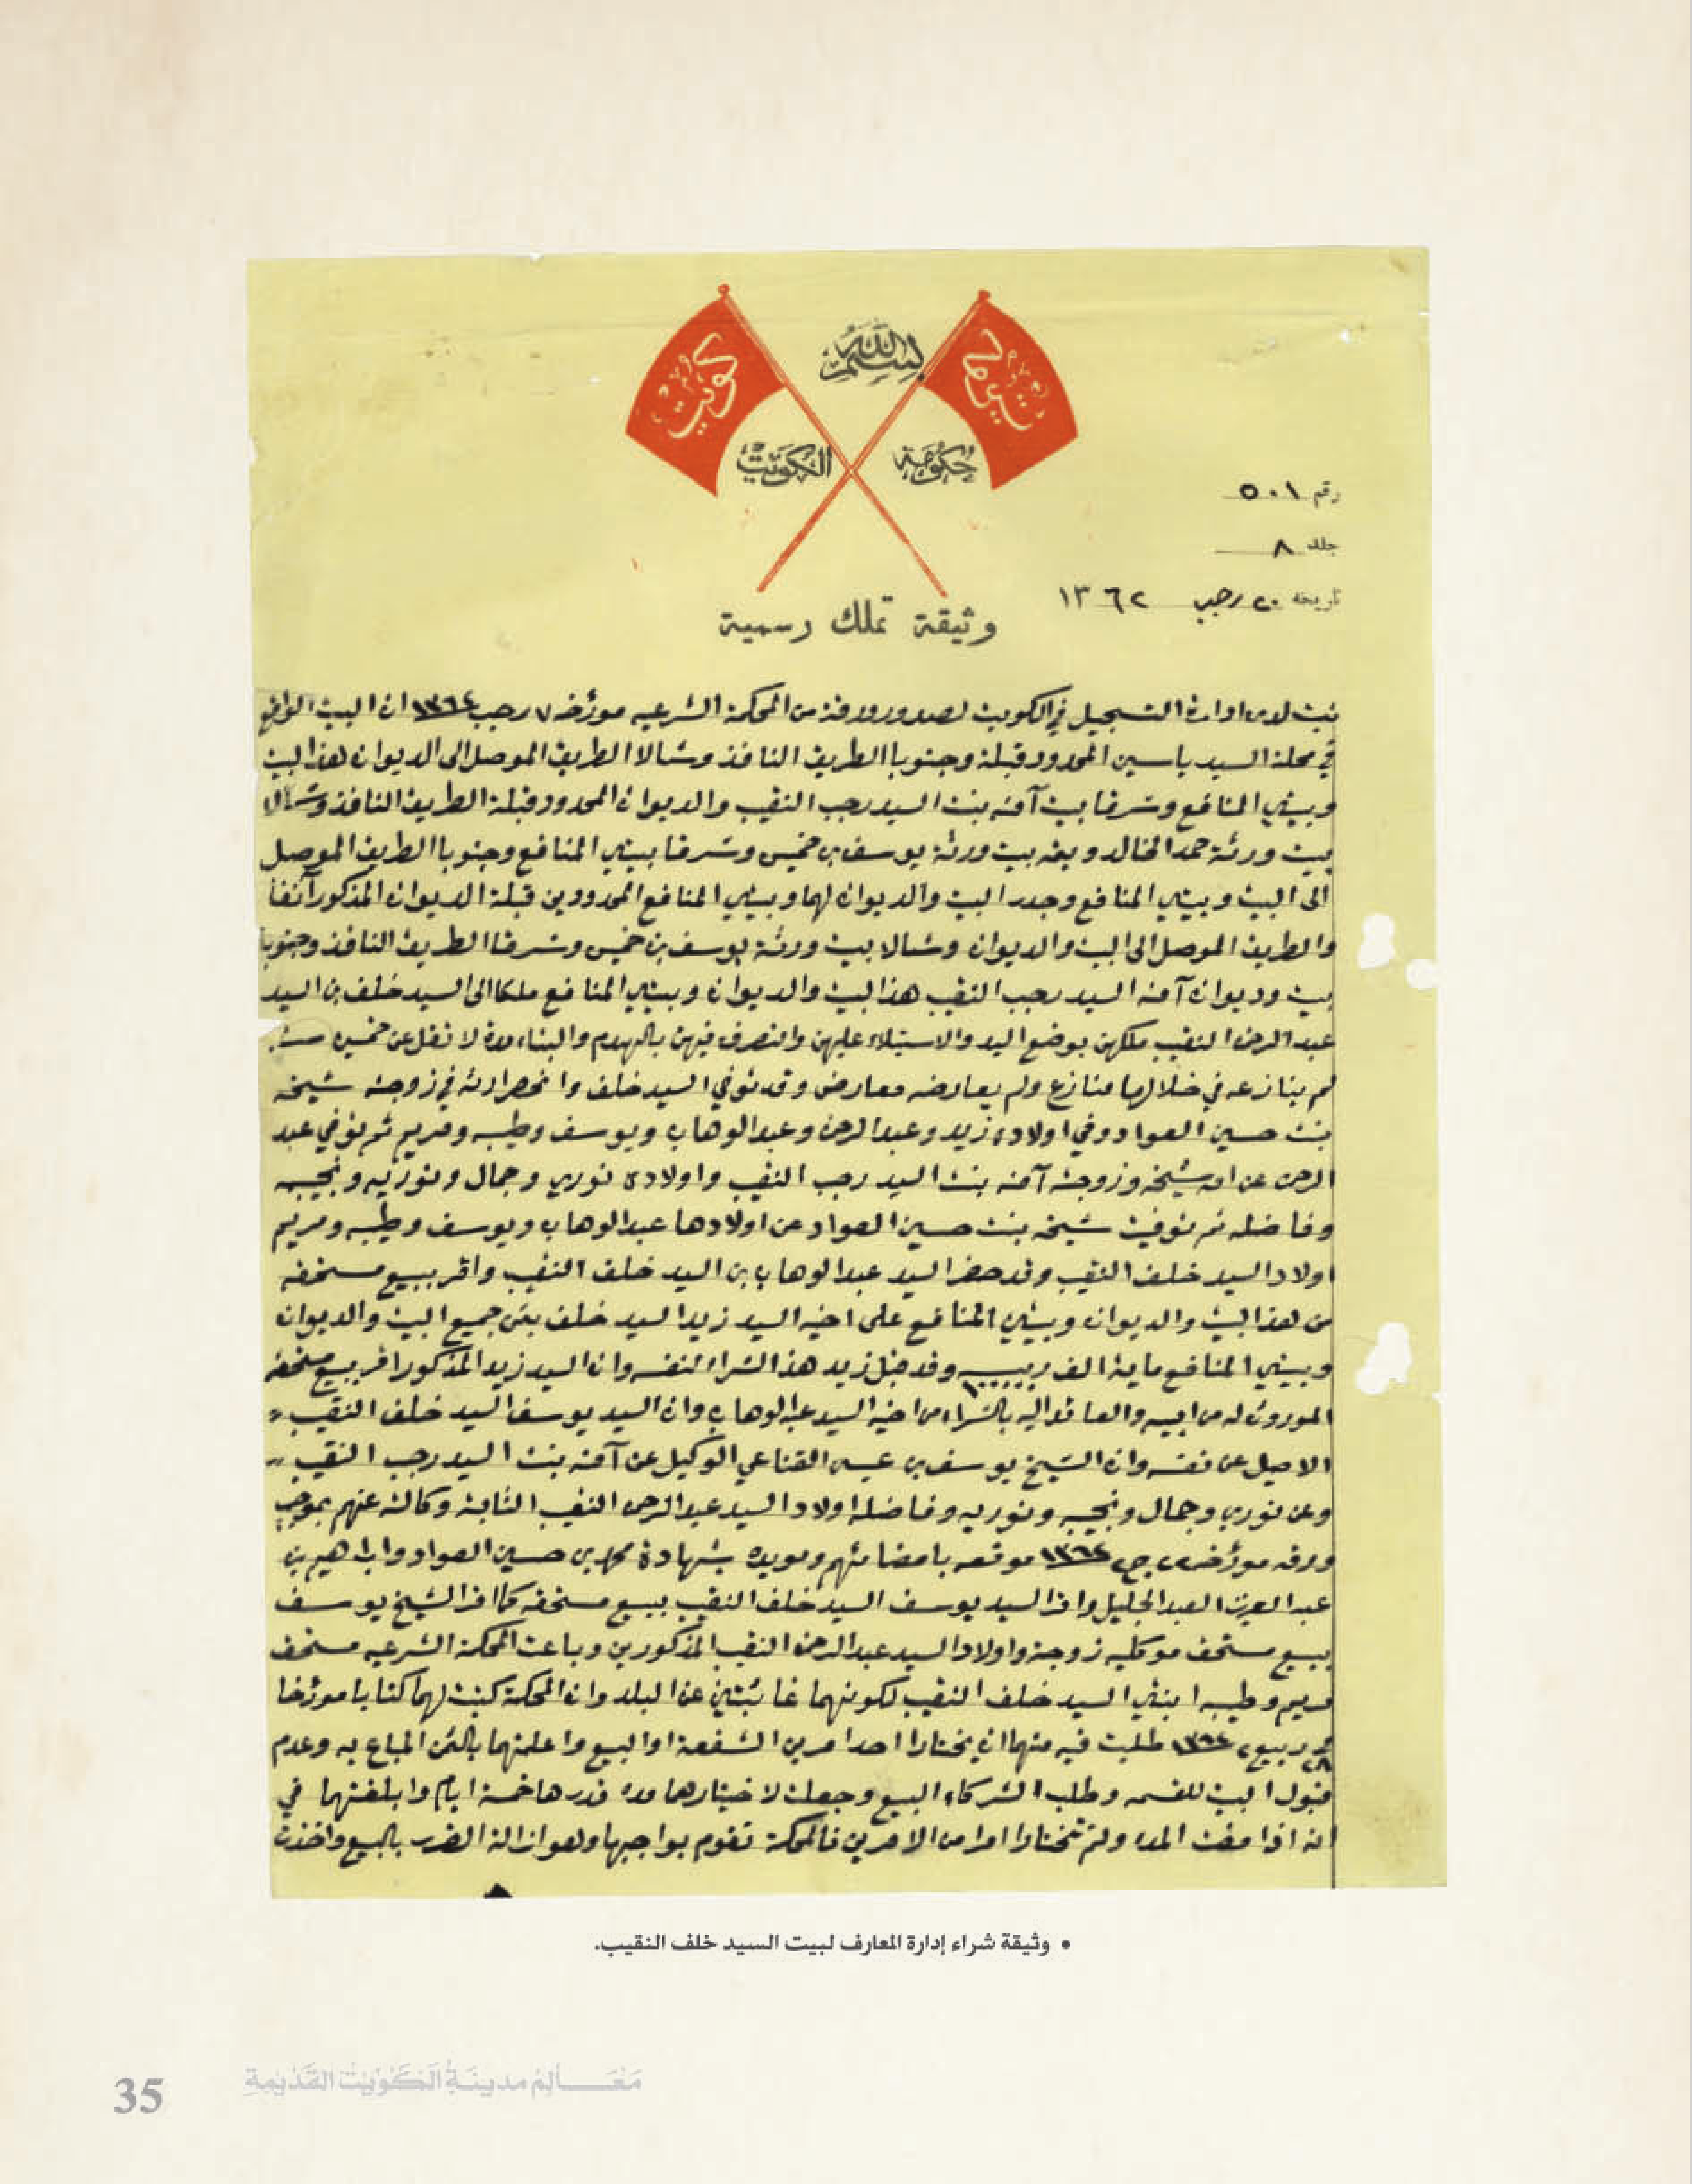 بسم الله
كويت
كويت
حكومة الكويت
رقم ٥٠١
جلد ٨
تاريخه ٢٠ رجب ١٣٦٢
وثيقة تملك رسمية
ثبت لدى ادارة التسجيل في الكويت لصدور ورقة من المحكمة الشرعيه مورخه ٧ رجب ١٣٦٢ ان البيت الواقع
في محلة السيد ياسين المحدود قبلة وجنوبا الطريق النافذ وشمالا الطريق الموصل الى الديوان هذا البيت
وبيتي المنافع وشرقا بيت آمنه بنت السيد رجب النقيب والديوان المحدود قبلة الطريق النافذ وشمالا
بيت ورثة حمد الخالد وبيت ورثة يوسف بن خميس وشرقا بيتي المنافع وجنوبا الطريق الموصل
الى البيت وبيتي المنافع وجدر البيت والديوان لهما وبيتي المنافع المحدودين قبلة الديوان المذكور آنفا
والطريق الموصل الى البيت والديوان وشمالا بيت ورثة يوسف بن خميس وشرقا الطريق النافذ وجنوبا
بيت وديوان آمنه السيد رجب النقيب هذا البيت والديوان وبيتي المنافع ملكا الى السيد خلف بن السيد
عبد الرحمن النقيب ملكهن بوضع اليد والاستيلاء عليهن والتصرف فيهن بالهدم والبناء مدة لا تقل عن خمسين سنة
لم ينازعه في خلالها منازع ولم يعارضه معارض وقد توفي السيد خلف وانحصر ارثه في زوجته شيخه
بنت حسين العواد وفي اولاده زيد وعبد الرحمن وعبد الوهاب ويوسف وطيبه ومريم ثم توفي عبد
الرحمن عن امه شيخه وزوجته آمنه بنت السيد رجب النقيب واولاده نوري وجمال ونوريه ونجيبه
وفاضله ثم توفيت شيخه بنت حسين العواد عن اولادها عبد الوهاب ويوسف وطيبه ومريم
اولاد السيد خلف النقيب وقد حضر السيد عبد الوهاب بن السيد خلف النقيب واقر ببيع مستحقه
من هذا البيت والديوان وبيتي المنافع على اخيه السيد زيد السيد خلف بثمن جميع البيت والديوان
وبيتي المنافع ماية الف ربيه ١٠٠٠٠٠ وقد قبل زيد هذا الشراء لنفسه وان السيد زيد المذكور اقر ببيع مستحقه
الموروث له من ابيه والعائد اليه بالشراء من اخيه السيد عبد الوهاب وان السيد يوسف السيد خلف النقيب
الاصيل عن نفسه وان الشيخ يوسف بن عيسى القناعي الوكيل عن آمنه بنت السيد رجب النقيب
وعن نوري وجمال ونجيبه ونوريه وفاضله اولاد السيد عبد الرحمن النقيب الثابته وكالته عنهم بموجب
ورقه مورخه موقعه بامضائهم ومويده بشهادة محمد بن حسين العواد وابراهيم بن
عبد العزيز العبد الجليل واقر السيد يوسف السيد خلف النقيب ببيع مستحقه كما اقر الشيخ يوسف
ببيع مستحق موكليه زوجة واولاد السيد عبد الرحمن النقيب المذكورين وباعت المحكمة الشرعيه مستحق
مريم وطيبه ابنتي السيد خلف النقيب لكونهما غائبتين عن البلد وان المحكمة كتبت لهما كتابا مورخا
ربيع ٢ طلبت فيه منهما ان يختارا احد امرين الشفعة او البيع واعلمتهما بالثمن المباع به وعدم
قبول البيت للقسمه وطلب الشركاء البيع وجعلت لاختيارهما مدة قدرها خمسة ايام وابلغتهما في
انه اذا مضت المدة ولم تختارا امرا من الامرين فالمحكمة تقوم بواجبها وهو ازالة الضرر بالبيع واخذت
• وثيقة شراء إدارة المعارف لبيت السيد خلف النقيب.
مَعَالِمُ مدينَةِ الكُوَيْت القَديمَةِ
35